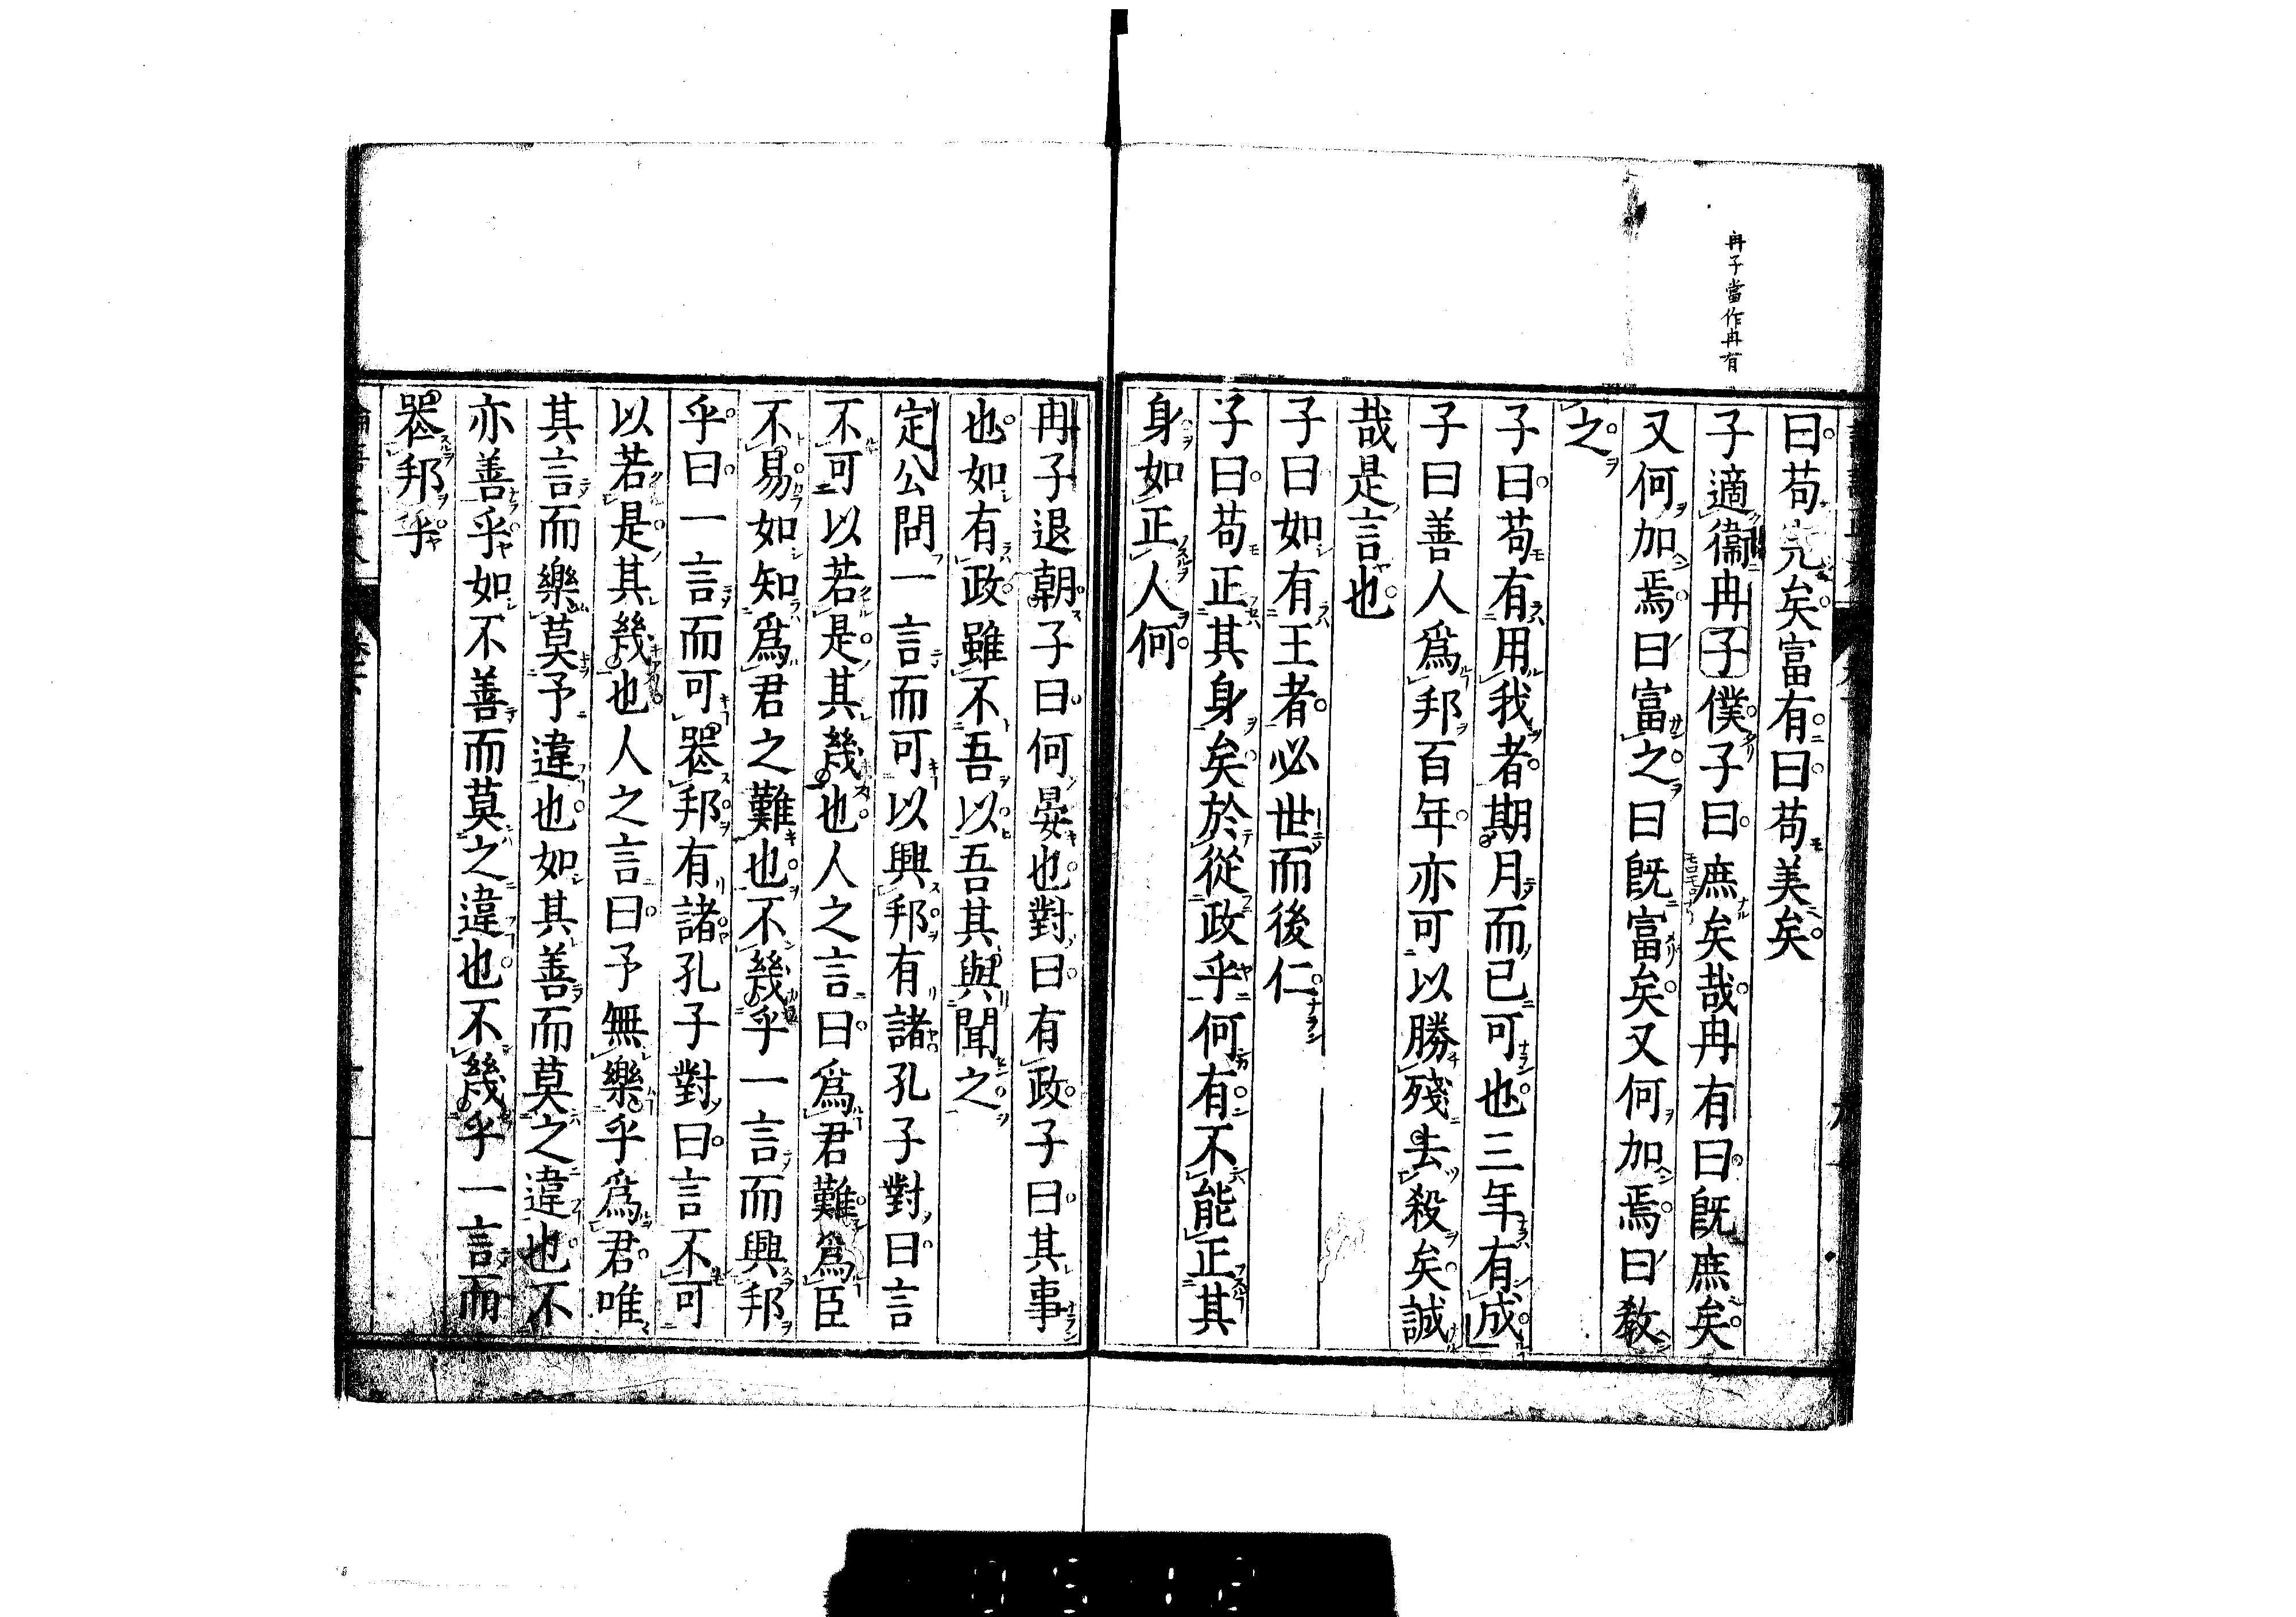 冉子當作冉有
曰苟完矣富有曰苟美矣
子適衞冉子僕子曰庶矣哉冉有曰既庶矣
又何加焉曰富之曰既富矣又何加焉曰教
之
子曰苟有用我者期月而已可也三年有成
子曰善人爲邦百年亦可以勝殘去殺矣誠
哉是言也
子曰如有王者必世而後仁
子曰苟正其身矣於從政乎何有不能正其
身如正人何
冉子退朝子曰何晏也對曰有政子曰其事
也如有政雖不吾以吾其與聞之
定公問一言而可以興邦有諸孔子對曰言
不可以若是其幾也人之言曰爲君難爲臣
不易如知爲君之難也不幾乎一言而興邦
乎曰一言而可喪邦有諸孔子對曰言不可
以若是其幾也人之言曰予無樂乎爲君唯
其言而樂莫予違也如其善而莫之違也不
亦善乎如不善而莫之違也不幾乎一言而
喪邦乎